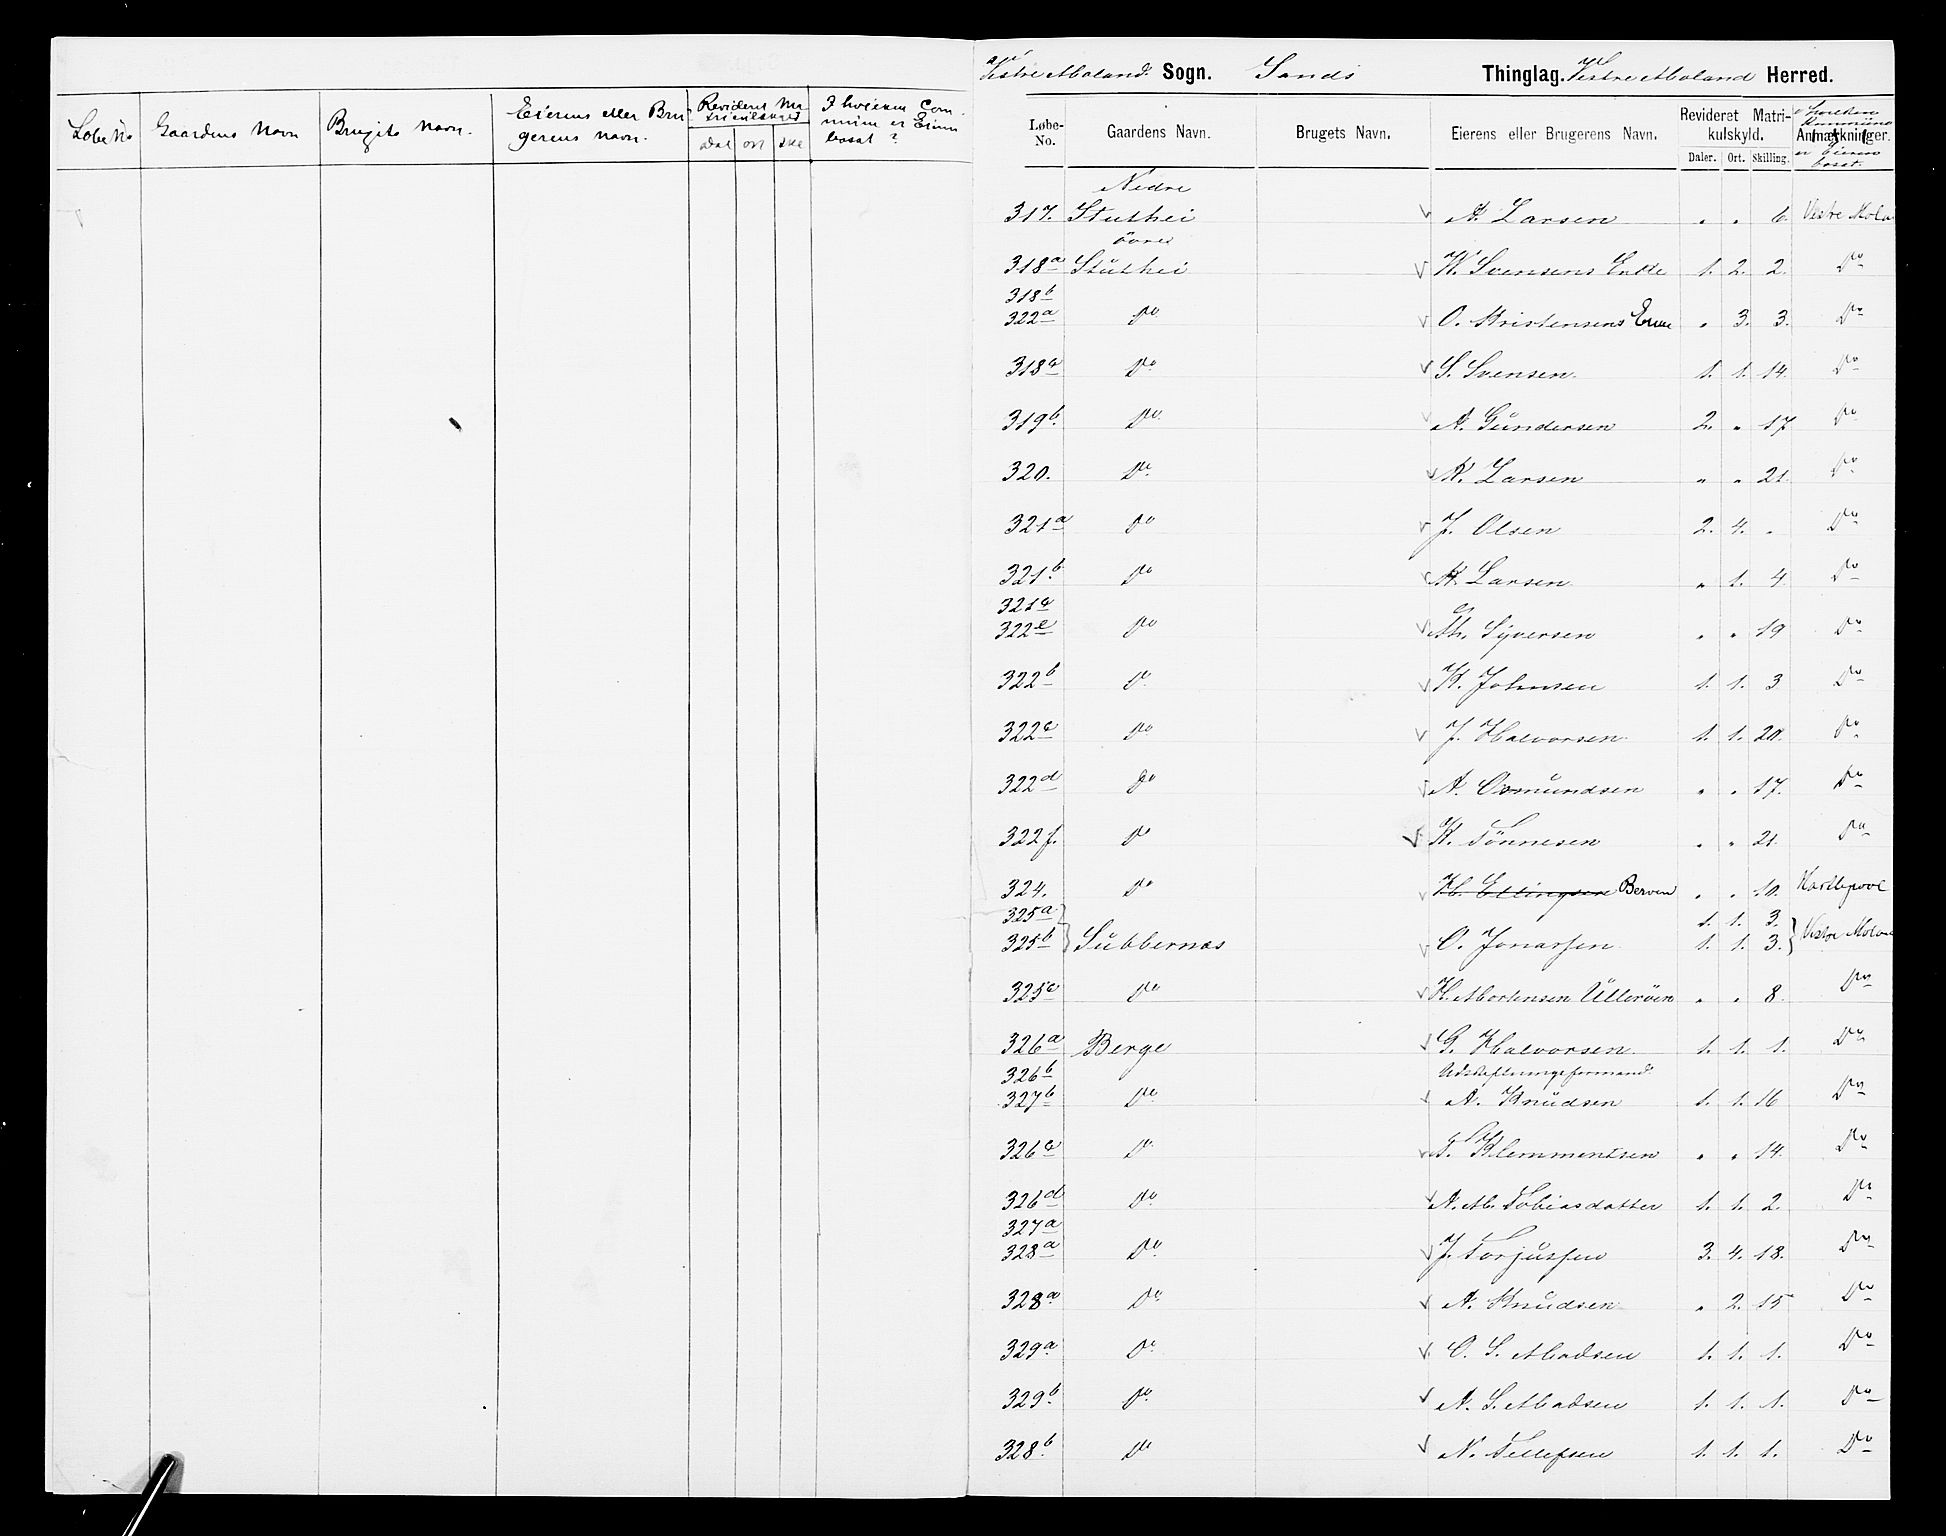 Løbe No
Gaardens Navn
Brugets Navn.
Eierens eller Bru
gerens navn.
Revideret Ma
trikulskyld
Dal ort Skl
I hvilken Com
mune er Eieren
bosat?
Vestre Moland. Sogn. Sands Thinglag. Vestre Moland Herred.
Løbe-No. Gaardens Navn. Brugets Navn. Eierens eller Brugerens Navn. Revideret Matrikulskyld. Daler. Ort. Skilling. Anmærkninger.
I hvilken Kommune er Eieren bosat.
Nedre
317. Stuthei A. Larsen " " 6. Vestre Mola
övre
318a Stuthei N. Svensens Enke 1. 2. 2. Do
318b
322a Do O. Kristensens Enke " 3. 3. Do
318c Do S. Svensen. 1. 1. 14. Do
319b. Do A. Gundersen 2. " 17 Do
320. Do K. Larsen " " 21. Do
321a Do J. Olsen 2. 4. " Do
321b. Do K. Larsen " 1. 4. Do
321c
322e Do Th. Syversen " " 19 Do
322b Do K. Johnsen 1. 1. 3 Do
322c Do J. Halvorsen. 1. 1. 20. Do
322d Do A. Osmundsen " " 17. Do
322f. Do K. Tönnesen " " 21. Do
324. Do H. Ellingsen Berven " " 10. Hartlepool
325a. 1. 1. 3.
325b Lubbernæs O. Jonassen 1. 1. 3. Vestre Mola
325c Do H. Mortensen Ulleröen " " 8. Do
326a Berge G. Halvorsen. 1. 1. 1. Do
326b Udskiftningsformand.
327b. Do A. Knudsen 1. 1. 16 Do
326c Do T. Klemmentsen " " 14. Do
326d Do N. M. Tobiasdatter 1. 1. 2. Do
327a
328a Do J. Torjussen 3. 4. 18. Do
328a. Do A. Knudsen " 2. 15 Do
329a. Do O. S. Madsen 1. 1. 1. Do
329b. Do N. S. Madsen 1. 1. 1. Do
328b. Do N. Tellefsen 1. 1. 1. Do